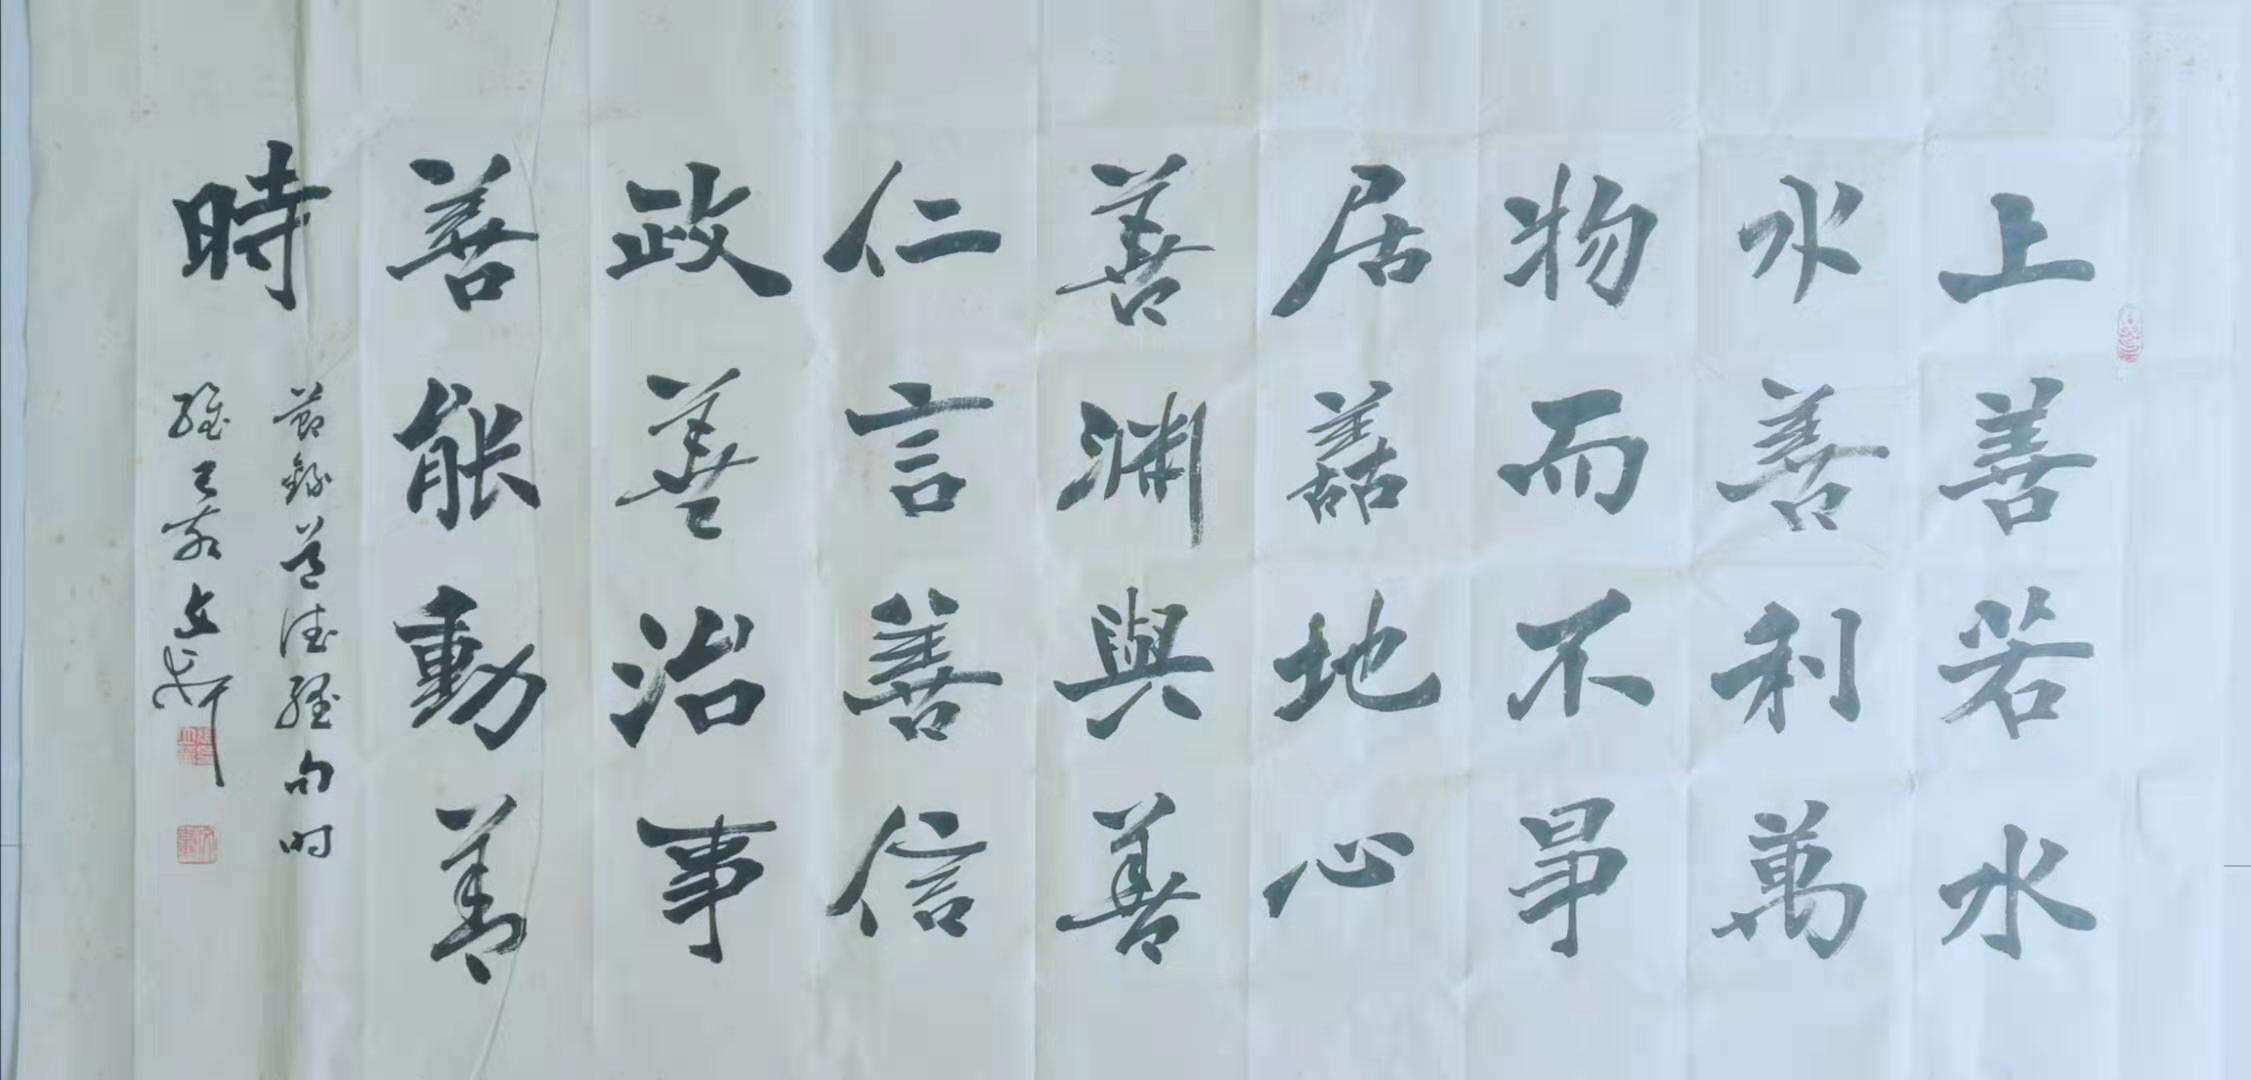 上善若水
水善利萬
物而不爭
居善地心
善渊與善
仁言善信
政善治事
善能動善
時
節錄道德經句时